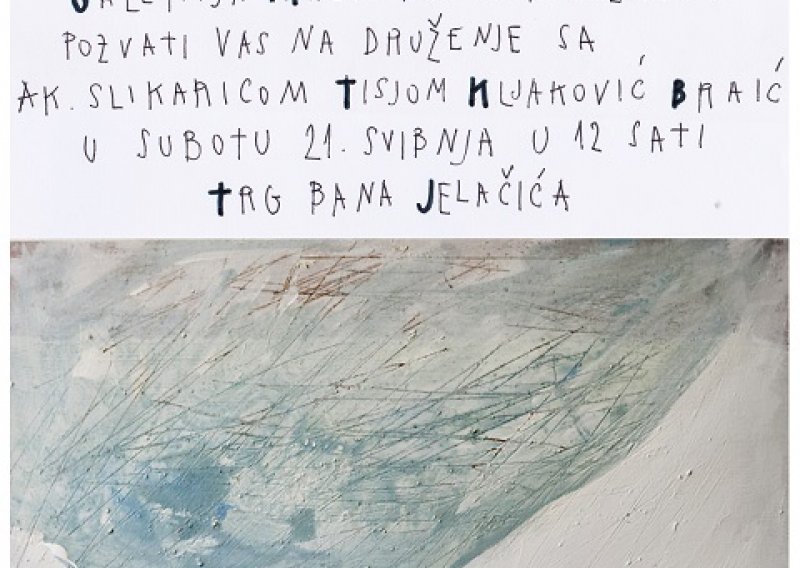 POZVATI VAS NA DRUŽENJE SA
AK. SLIKARICOM TISJOM KLJAKOVIĆ BRAIĆ
U SUBOTU 21. SVIBNJA U 12 SATI
TRG BANA JELAČIĆA